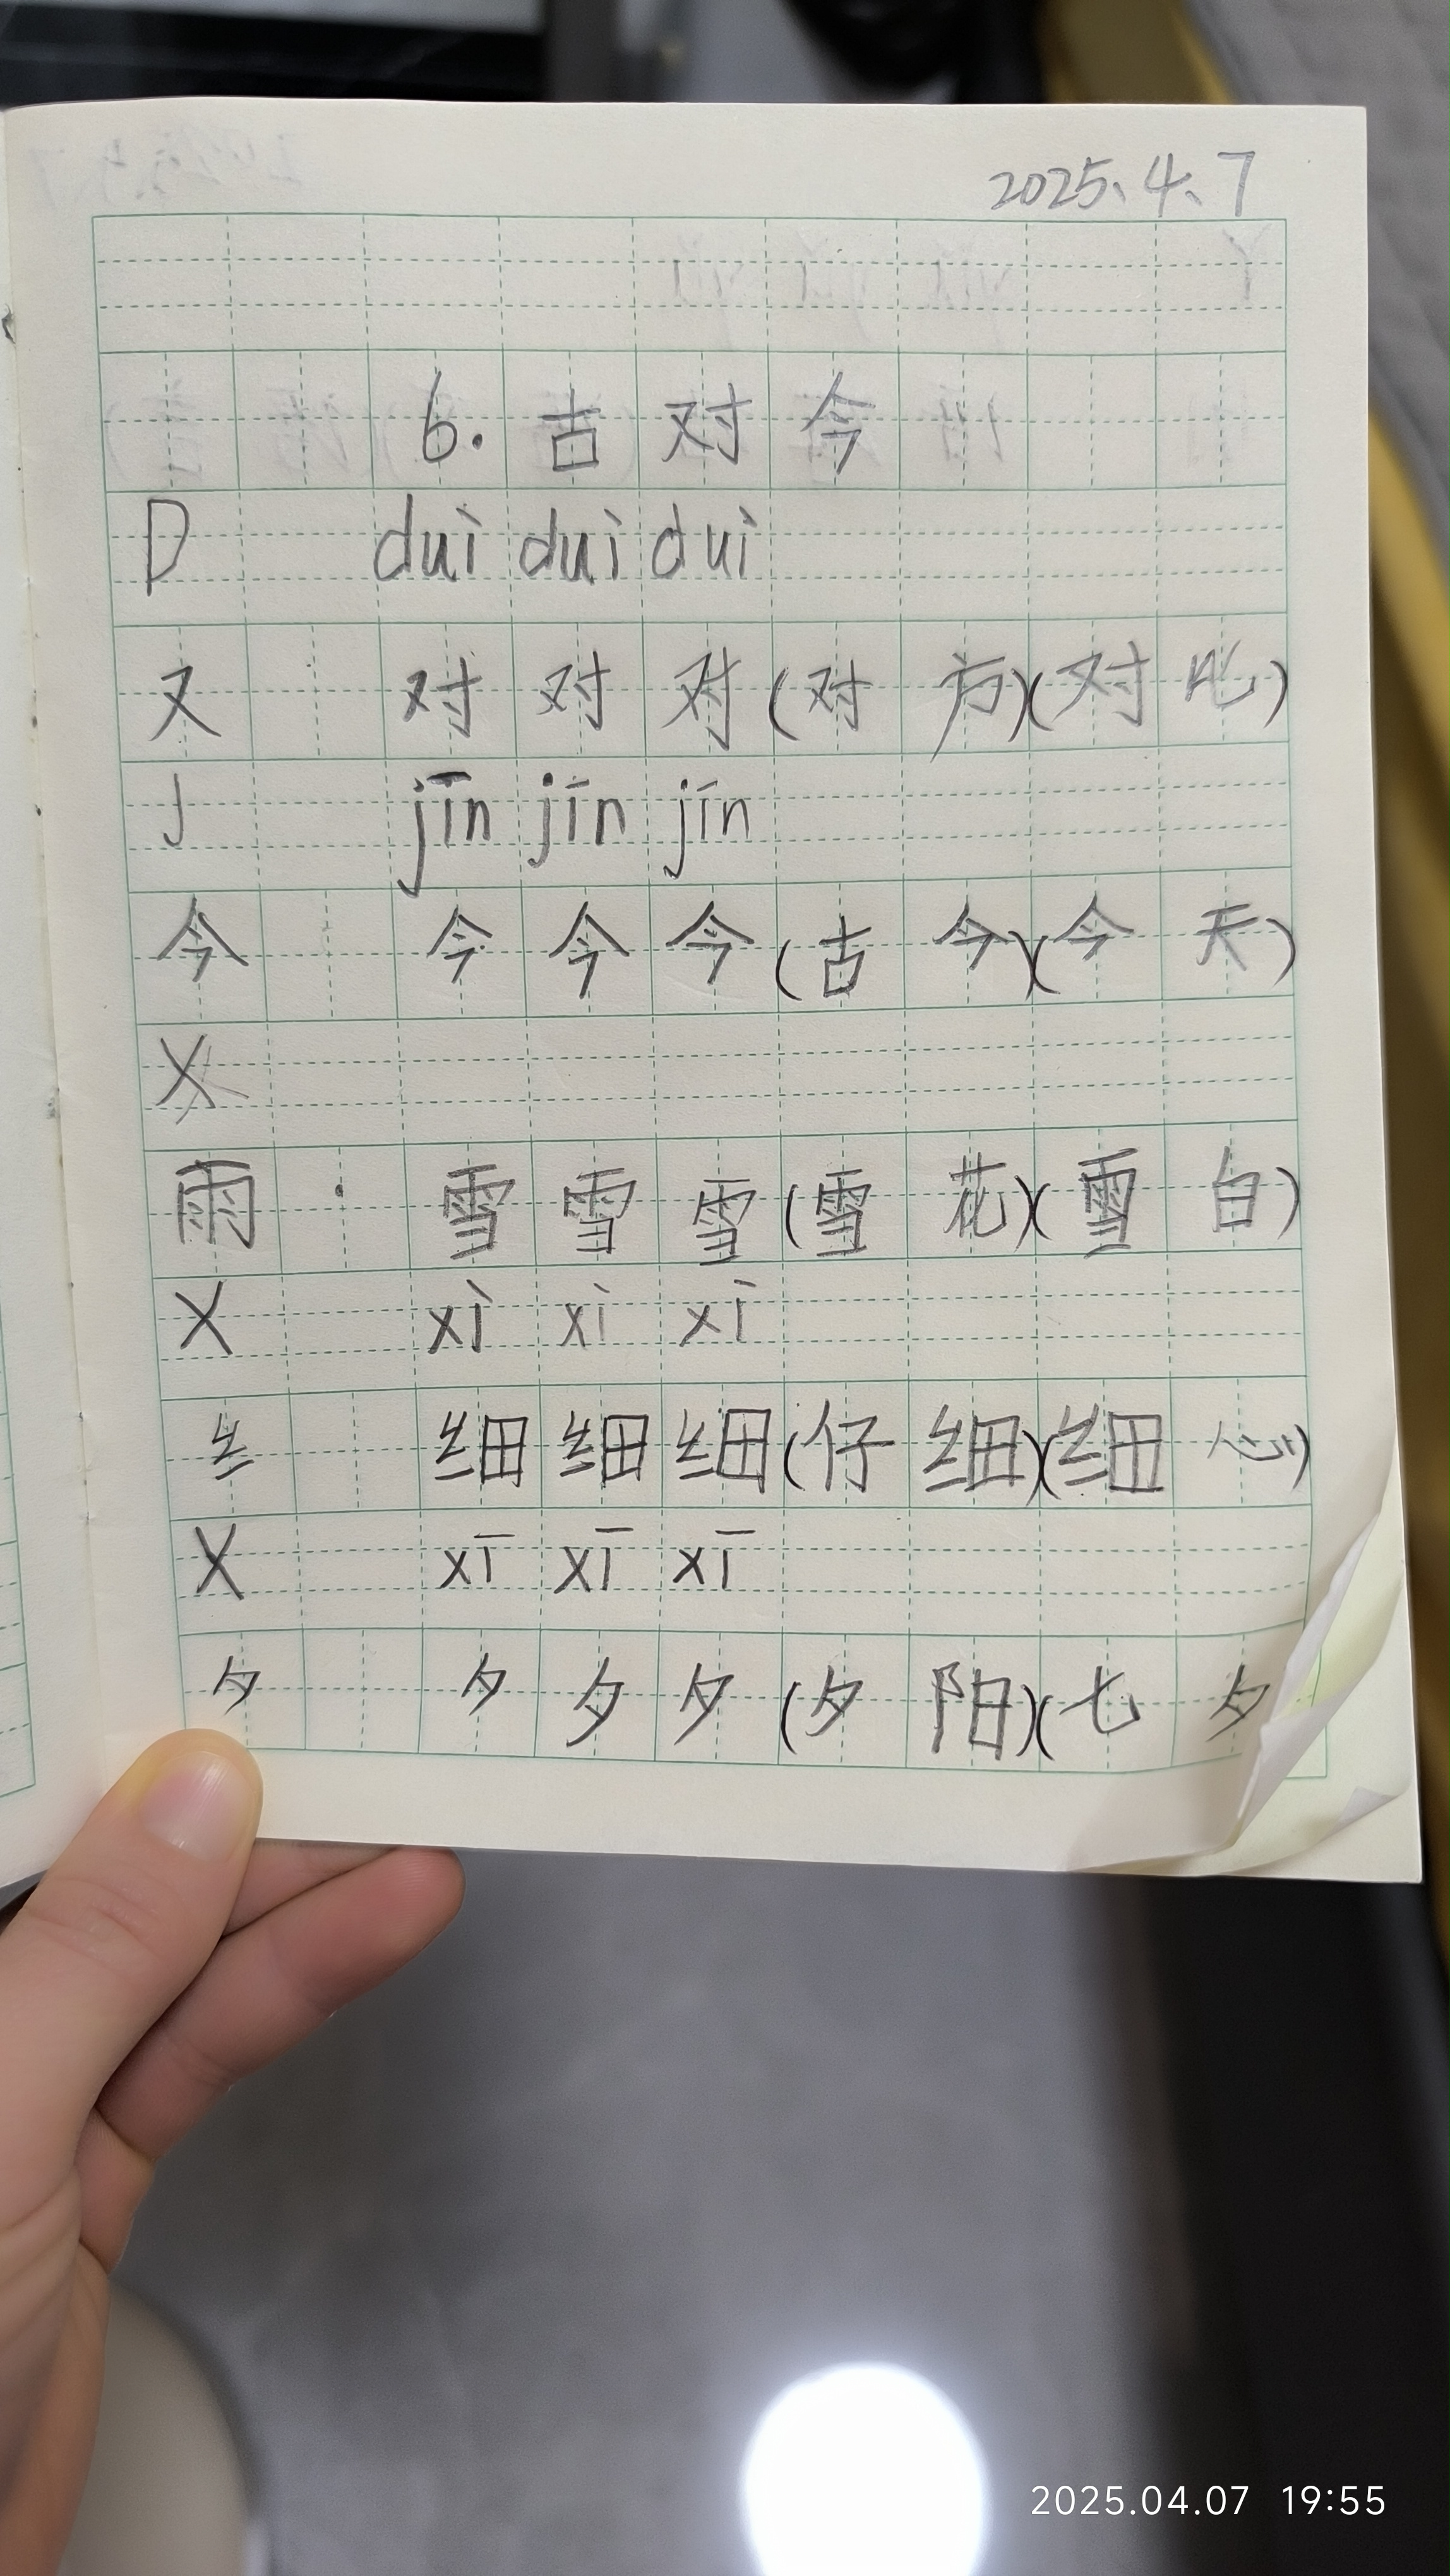 2025、4、7
6. 古对今
D duì duì duì
又 对 对 对 (对方)(对比)
J jīn jīn jīn
今 今 今 今 (古今)(今天)
X
雨 雪 雪 雪 (雪花)(雪白)
X xì xì xì
纟 细 细 细 (仔细)(细心)
X xī xī xī
夕 夕 夕 夕 (夕阳)(七夕
2025.04.07 19:55